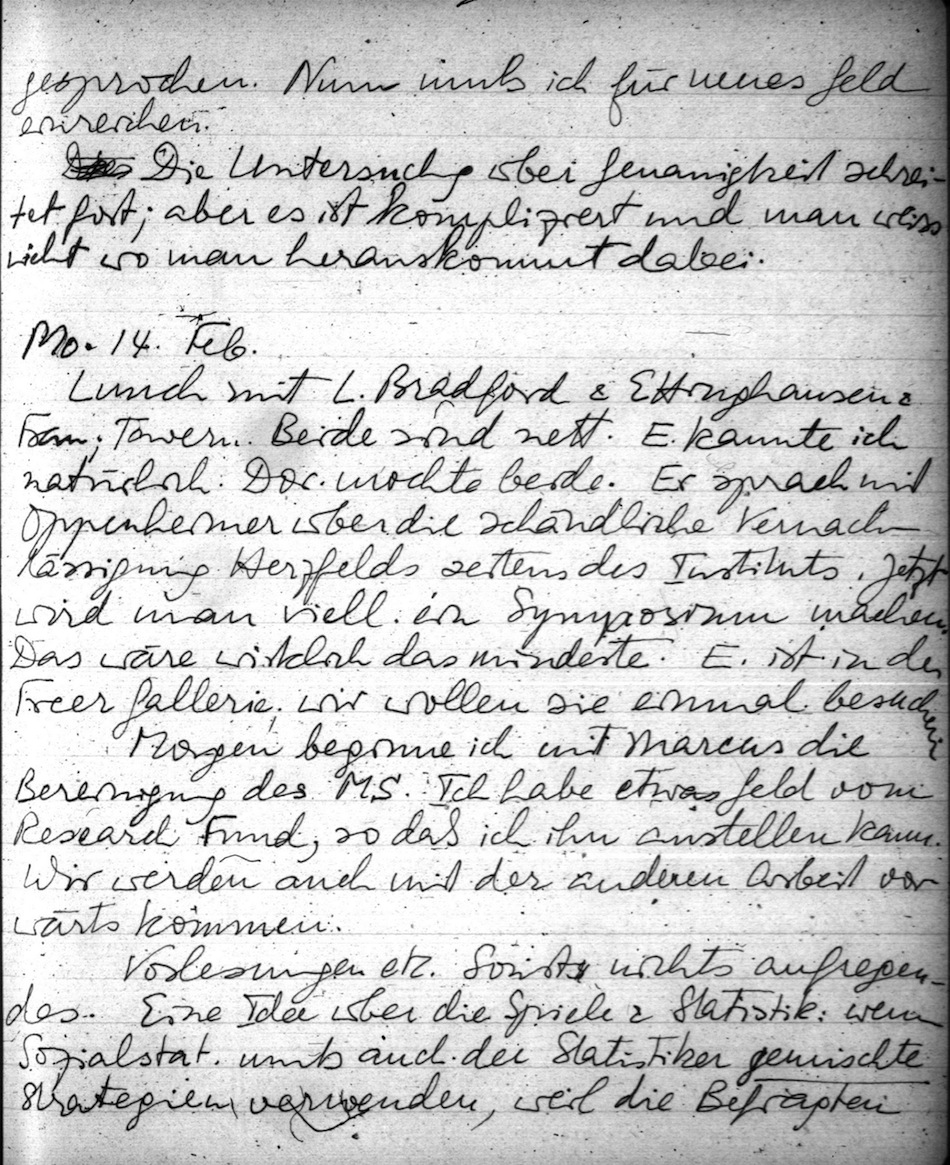 gesprochen. Nun muß ich für neues Geld
einreichen.
Die Untersuchg über Genauigkeit schrei-
tet fort; aber es ist kompliziert und man weiss
nicht wo man herauskommt dabei.
Mo. 14. Feb.
Lunch mit L. Bradford & Ettinghausen &
Frau, Tavern. Beide sind nett. E. kannte ich
natürlich. Dor. mochte beide. Er sprach mit
Oppenheimer über die schändliche Vernach-
lässigung Herzfelds seitens des Instituts. Jetzt
wird man viell. ein Symposium machen.
Das wäre wirklich das mindeste. E. ist in der
Freer Gallerie, wir wollen sie einmal besuchen
Morgen beginne ich mit Marcus die
Bereinigung des MS. Ich habe etwas Geld vom
Research Fund, so daß ich ihn anstellen kann.
Wir werden auch mit der anderen Arbeit vor-
wärts kommen.
Vorlesungen etc. Sonst nichts aufregen-
des. Eine Idee über die Spiele & Statistik: wenn
Sozialstat. muß auch der Statistiker gemischte
Strategien verwenden, weil die Befragten